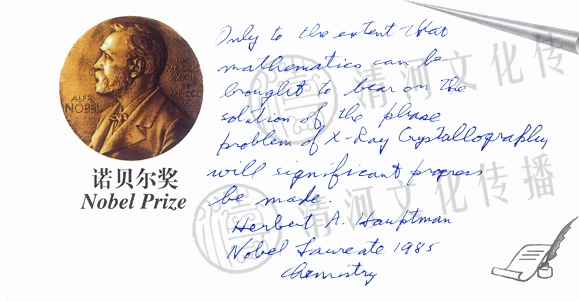 ALFR
NOBEL
诺贝尔奖
Nobel Prize
Only to the extent that
mathematics can be
brought to bear on the
solution of the phase
problem of X-Ray Crystallography
will significant progress
be made.
Herbert A. Hauptman
Nobel Laureate 1985
Chemistry
清河文化传播
清河文化传播